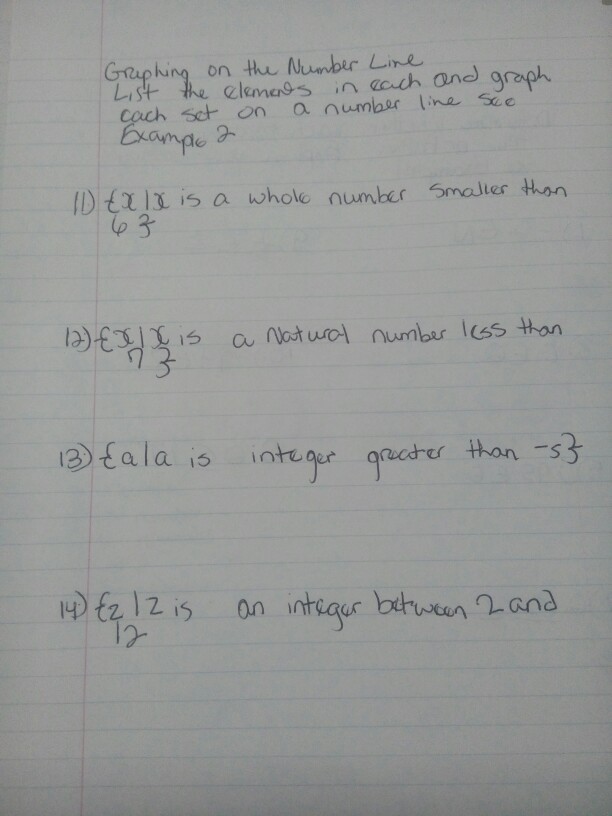 Graphing on the Number Line
List the elements in each and graph
each set on a number line see
Example 2
11) {x|x is a whole number smaller than
6}
12) {x|x is a Natural number less than
7}
13) {a|a is integer greater than -5}
14) {z|z is an integer between 2 and
12